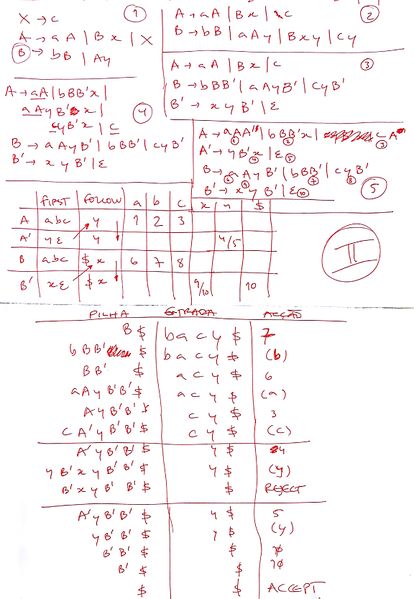 X → c ①
A → aA | Bx | X
B → bB | Ay
A → aA | Bx | c ②
B → bB | aAy | Bxy | cy
A → aA | Bx | c ③
B → bBB' | aAyB' | cyB'
B' → xyB' | ε
A → aA | bBB'x |
aAyB'x | ④
cyB'x | c
B → aAyB' | bBB' | cyB'
B' → xyB' | ε
A → aAA' | bBB'x | cA'
① ② ③
A' → yB'x | ε
④ ⑤
B → aAyB' | bBB' | cyB'
⑥ ⑦ ⑧
B' → xyB' | ε ⑤
⑨ ⑩
FIRST FOLLOW a b c x y $
A abc y 1 2 3
A' yε y 4/5
B abc $ x 6 7 8
B' xε $ x 9/10 10
II
PILHA ENTRADA ACÇÃO
B $ bacy $ 7
bBB' $ bacy $ (b)
BB' $ acy $ 6
aAyB'B' $ acy $ (a)
AyB'B' $ cy $ 3
cA'yB'B' $ cy $ (c)
A'yB'B' $ y $ 4
yB'xyB'B' $ y $ (y)
B'xyB'B' $ $ REJECT
A'yB'B' $ y $ 5
yB'B' $ y $ (y)
B'B' $ $ 10
B' $ $ 10
$ $ ACCEPT